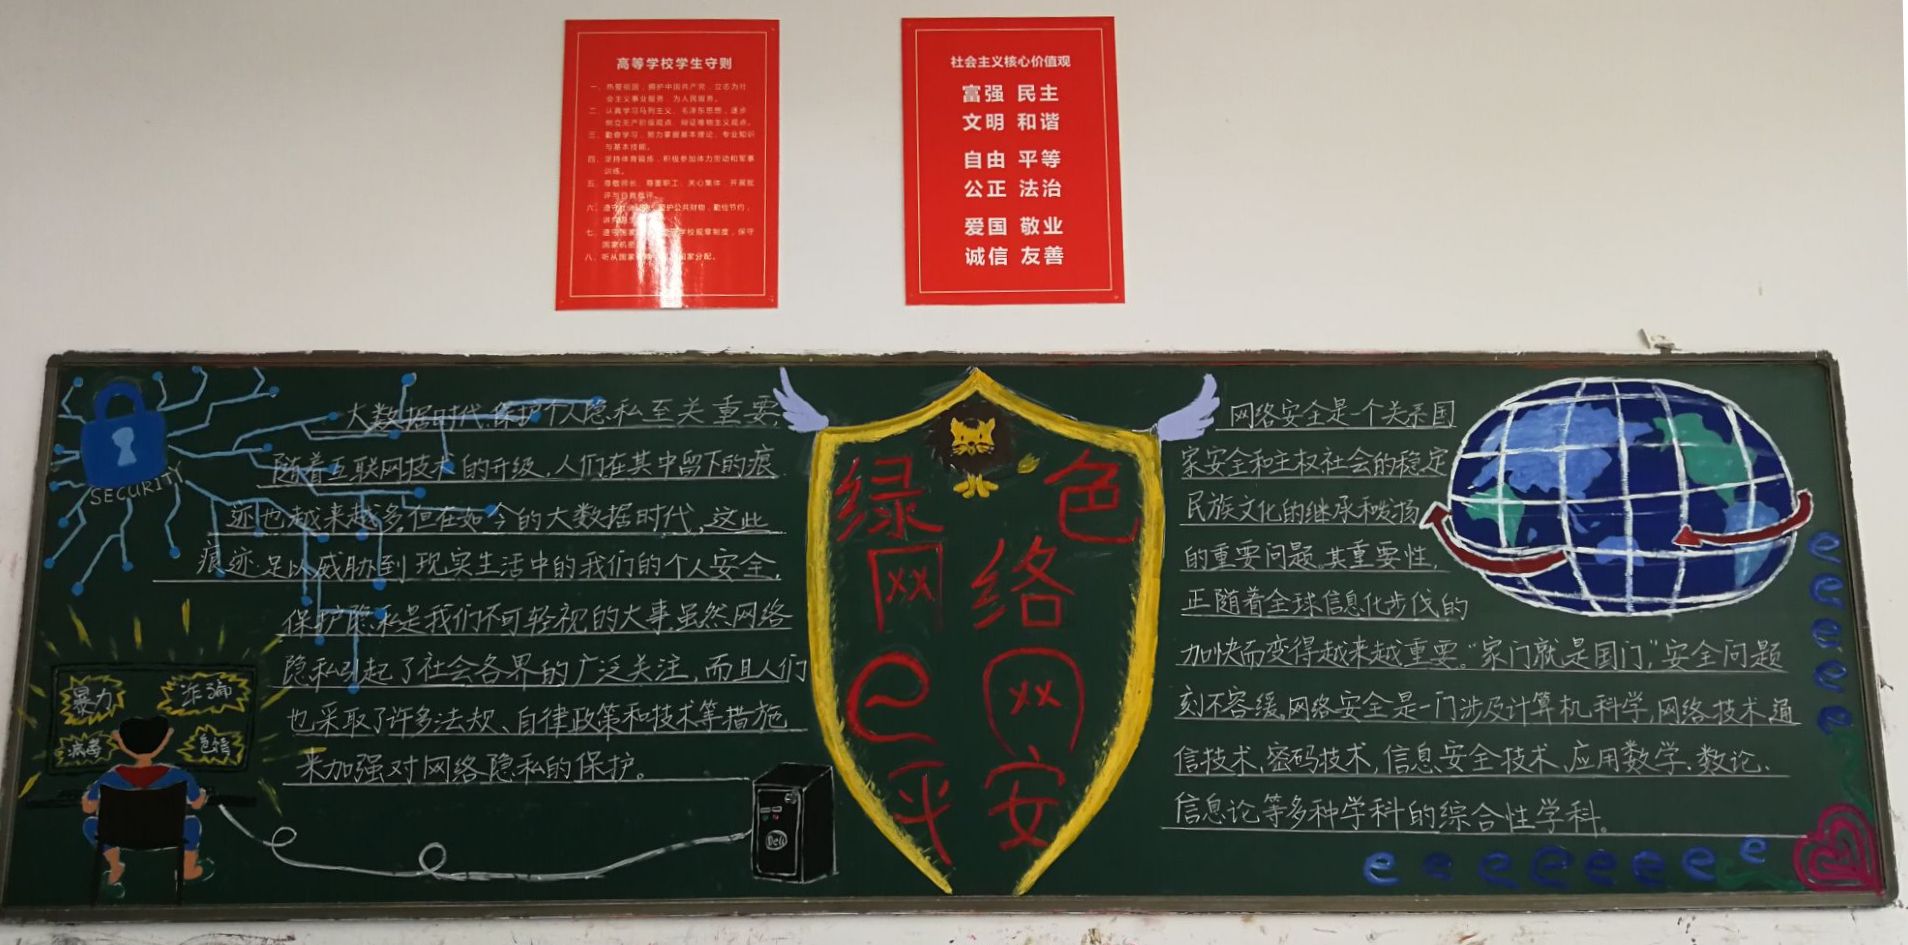 高等学校学生守则
一、热爱祖国，拥护中国共产党，立志为社
会主义事业服务，为人民服务。
二、认真学习马列主义、毛泽东思想，逐步
树立无产阶级观点、辩证唯物主义观点。
三、勤奋学习，努力掌握基本理论、专业知识
与基本技能。
四、坚持体育锻炼，积极参加体力劳动和军事
训练。
五、尊敬师长，尊重职工，关心集体，开展批
评与自我批评。
六、遵守 护公共财物，勤俭节约，
七、遵守国家 学校规章制度，保守
国家机密
八、听从国家 国家分配。
社会主义核心价值观
富强 民主
文明 和谐
自由 平等
公正 法治
爱国 敬业
诚信 友善
SECURITY
大数据时代,保护个人隐私至关重要,
随着互联网技术的升级,人们在其中留下的痕
迹也越来越多,但在如今的大数据时代,这些
痕迹足以威胁到现实生活中的我们的个人安全,
保护隐私是我们不可轻视的大事,虽然网络
隐私引起了社会各界的广泛关注,而且人们
也采取了许多法规、自律政策和技术等措施
来加强对网络隐私的保护。
暴力
诈骗
病毒
色情
Dell
绿色
网络
e网
平安
网络安全是一个关系国
家安全和主权社会的稳定
民族文化的继承和发扬
的重要问题。其重要性,
正随着全球信息化步伐的
加快而变得越来越重要。“家门就是国门”,安全问题
刻不容缓。网络安全是一门涉及计算机科学,网络技术,通
信技术,密码技术,信息安全技术、应用数学、数论、
信息论等多种学科的综合性学科。
e
e
e
e
e
e e e e e e e e